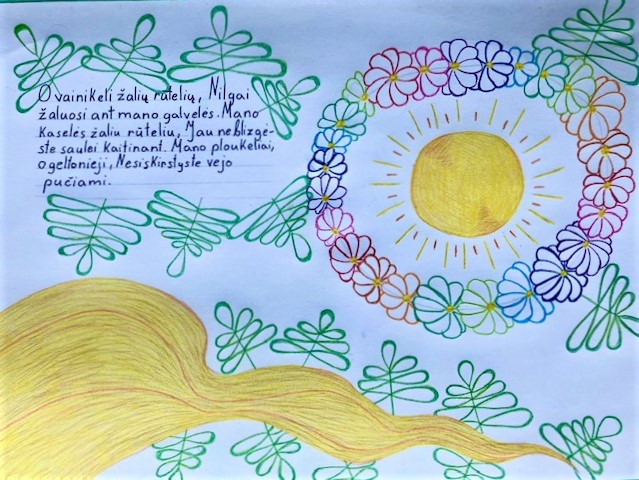 O vainikėli žalių rūtelių, Nilgai
žaluosi ant mano galvelės. Mano
Kaselės žaliu rūteliu, Jau neblizgė-
ste saulei kaitinant. Mano ploukeliai,
o geltonieji, Nesiskirstyste vėjo
pučiami.